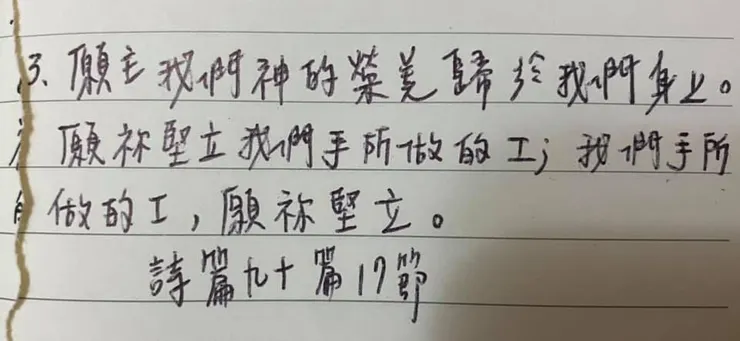 3、願主我們神的榮美歸於我們身上。
願祢堅立我們手所做的工；我們手所
做的工，願祢堅立。
詩篇九十篇17節